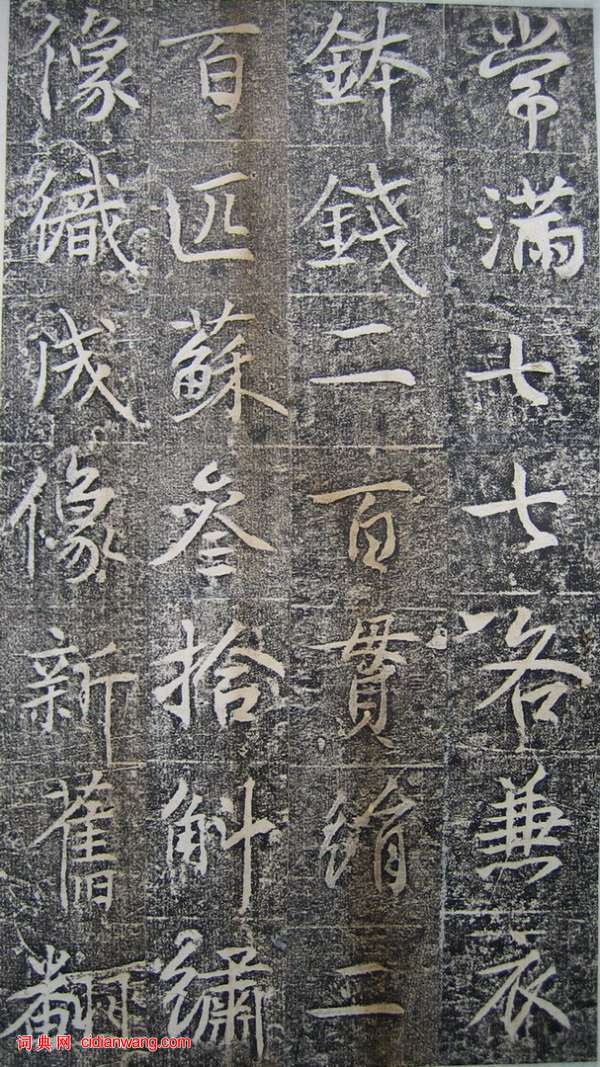 常滿七七各兼衣
鉢錢二百貫絹二
百匹蘇叁拾斛繡
像織成像新舊翻
词典网 cidianwang.com